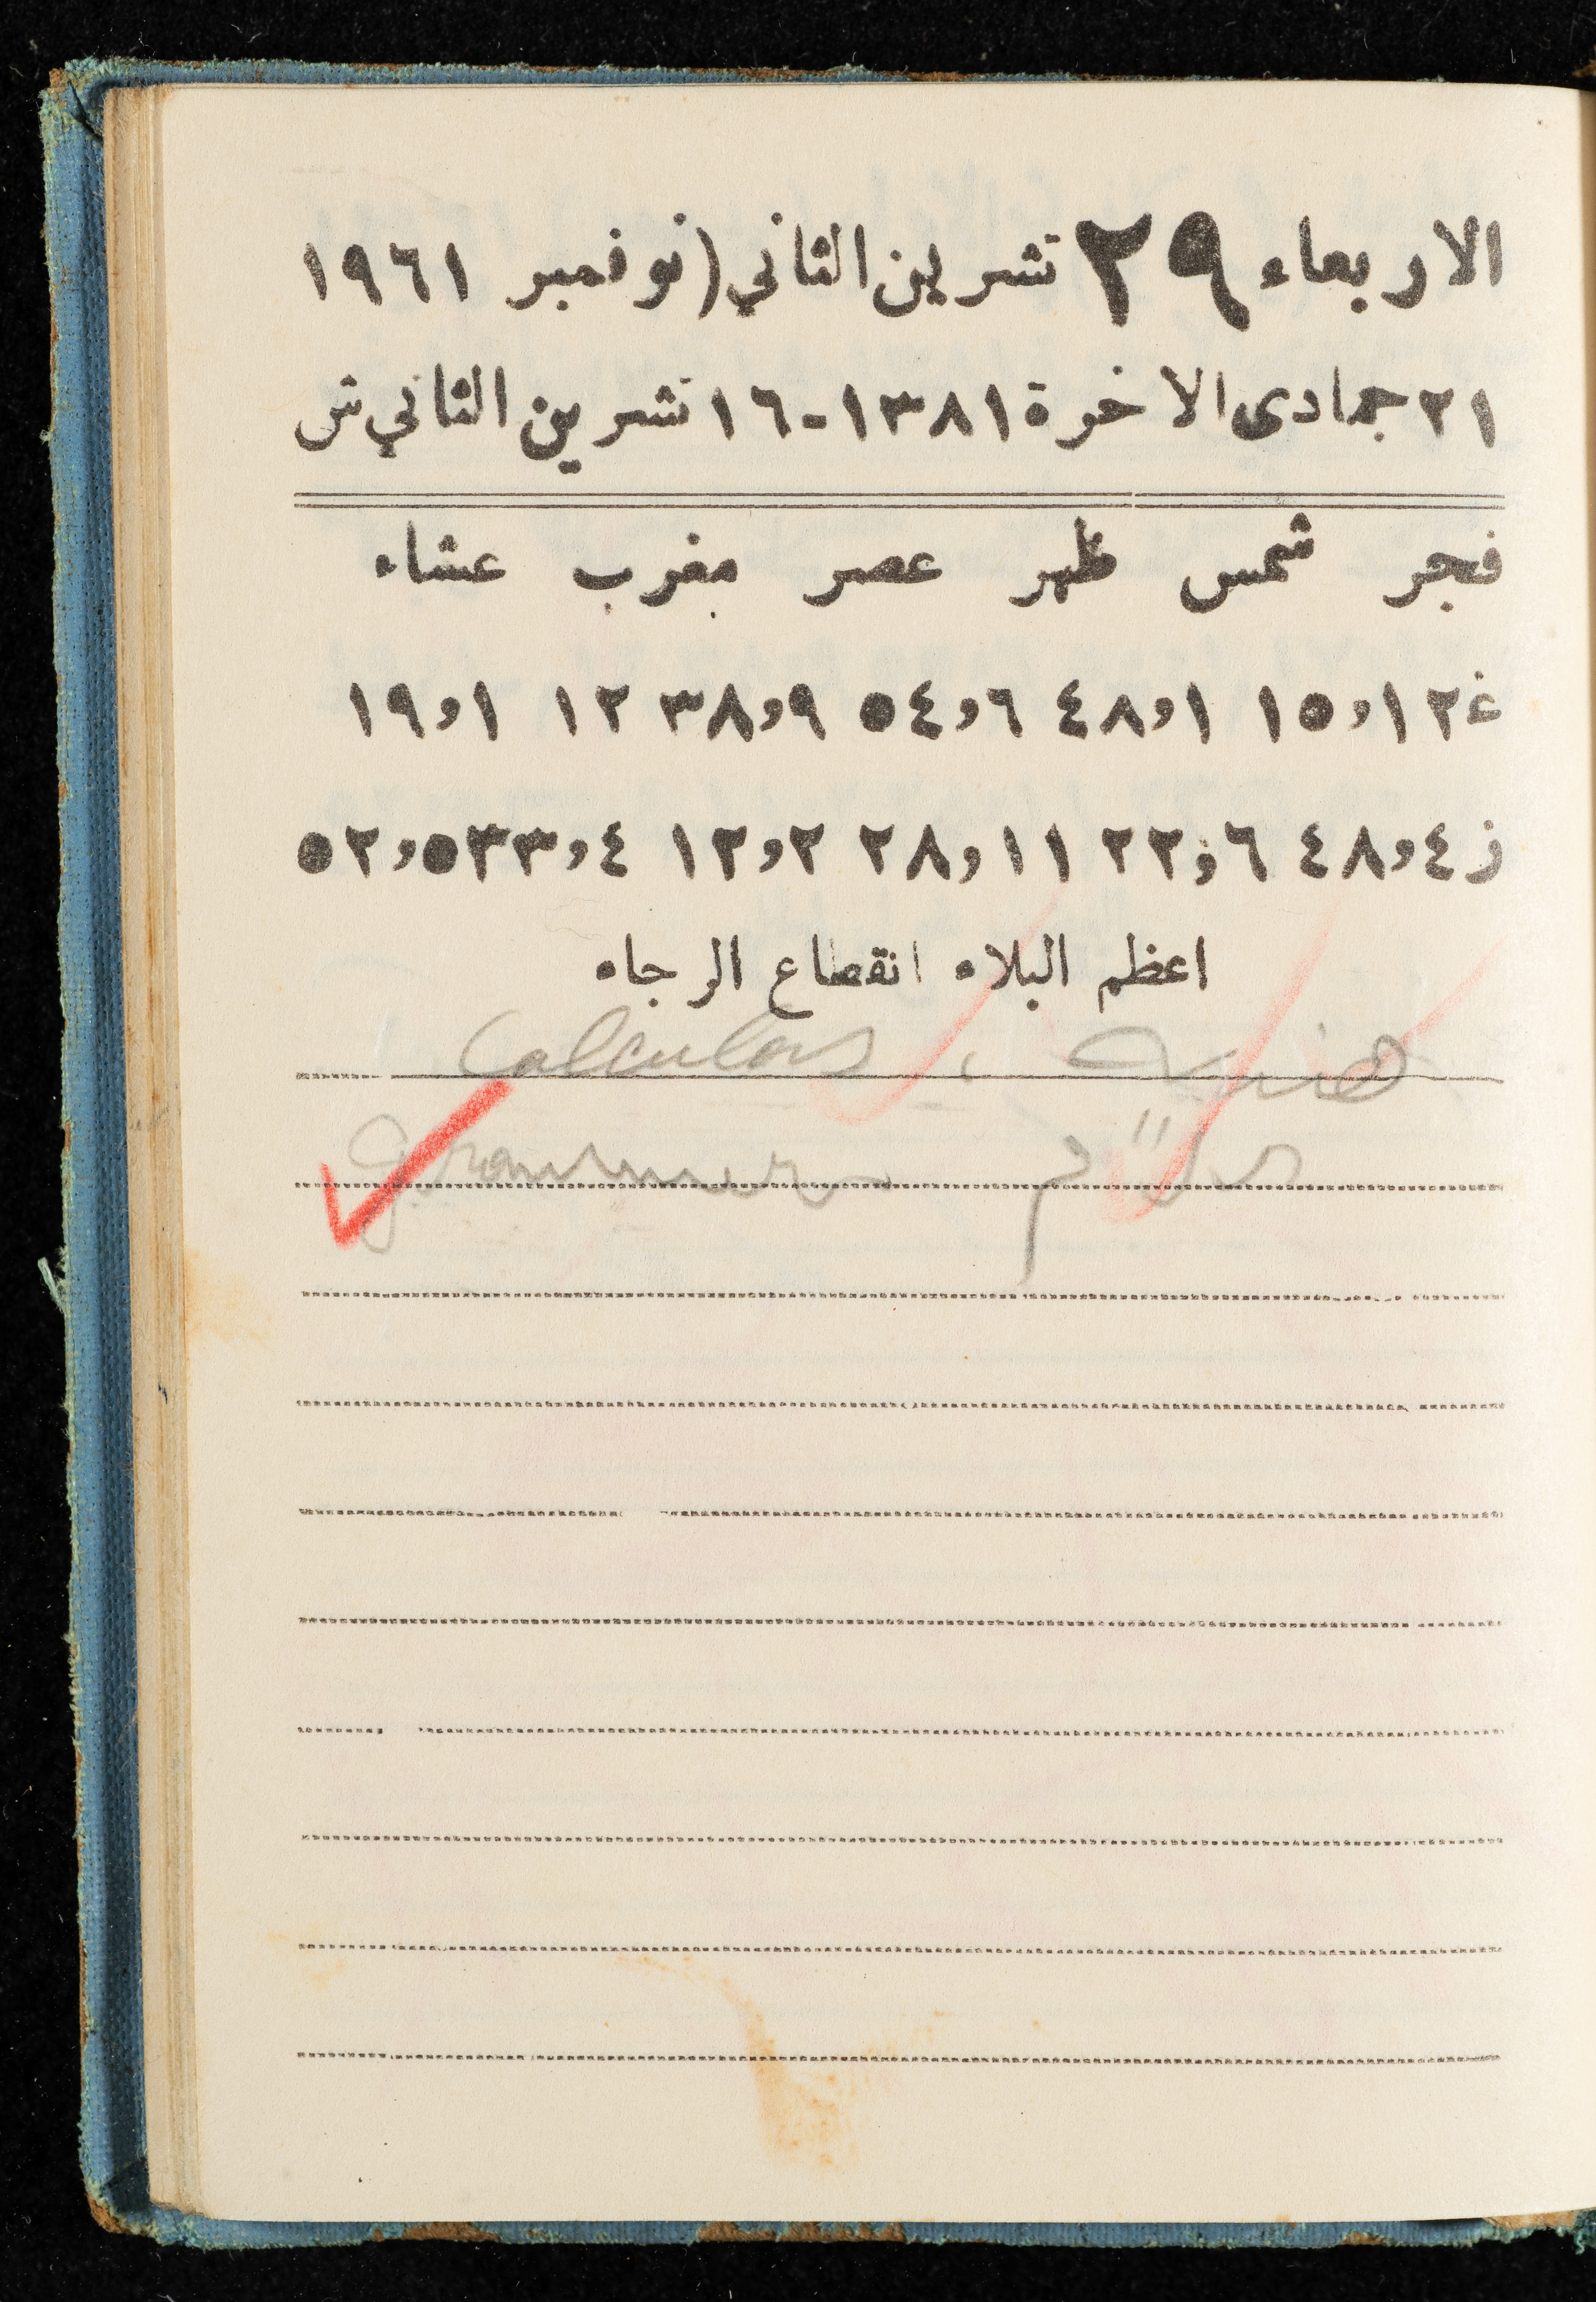 الاربعاء ٢٩ تشرين الثاني (نوفمبر ١٩٦١
٢١ جمادى الاخرة ١٣٨١-١٦ تشرين الثاني ش
فجر شمس ظهر عصر مغرب عشاء
غ ١٢,١٥ ١,٤٨ ٦,٥٤ ٩,٣٨ ١٢ ١,١٩
ز ٤,٤٨ ٦,٢٢ ١١,٢٨ ٢,١٢ ٤,٣٣ ٥,٥٢
اعظم البلاء انقطاع الرجاء
Calculas ,
grammer